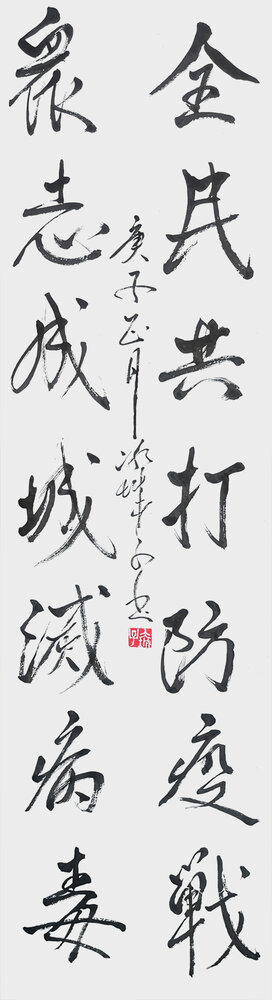 全民共打防疫戰
眾志成城滅病毒
庚子正月